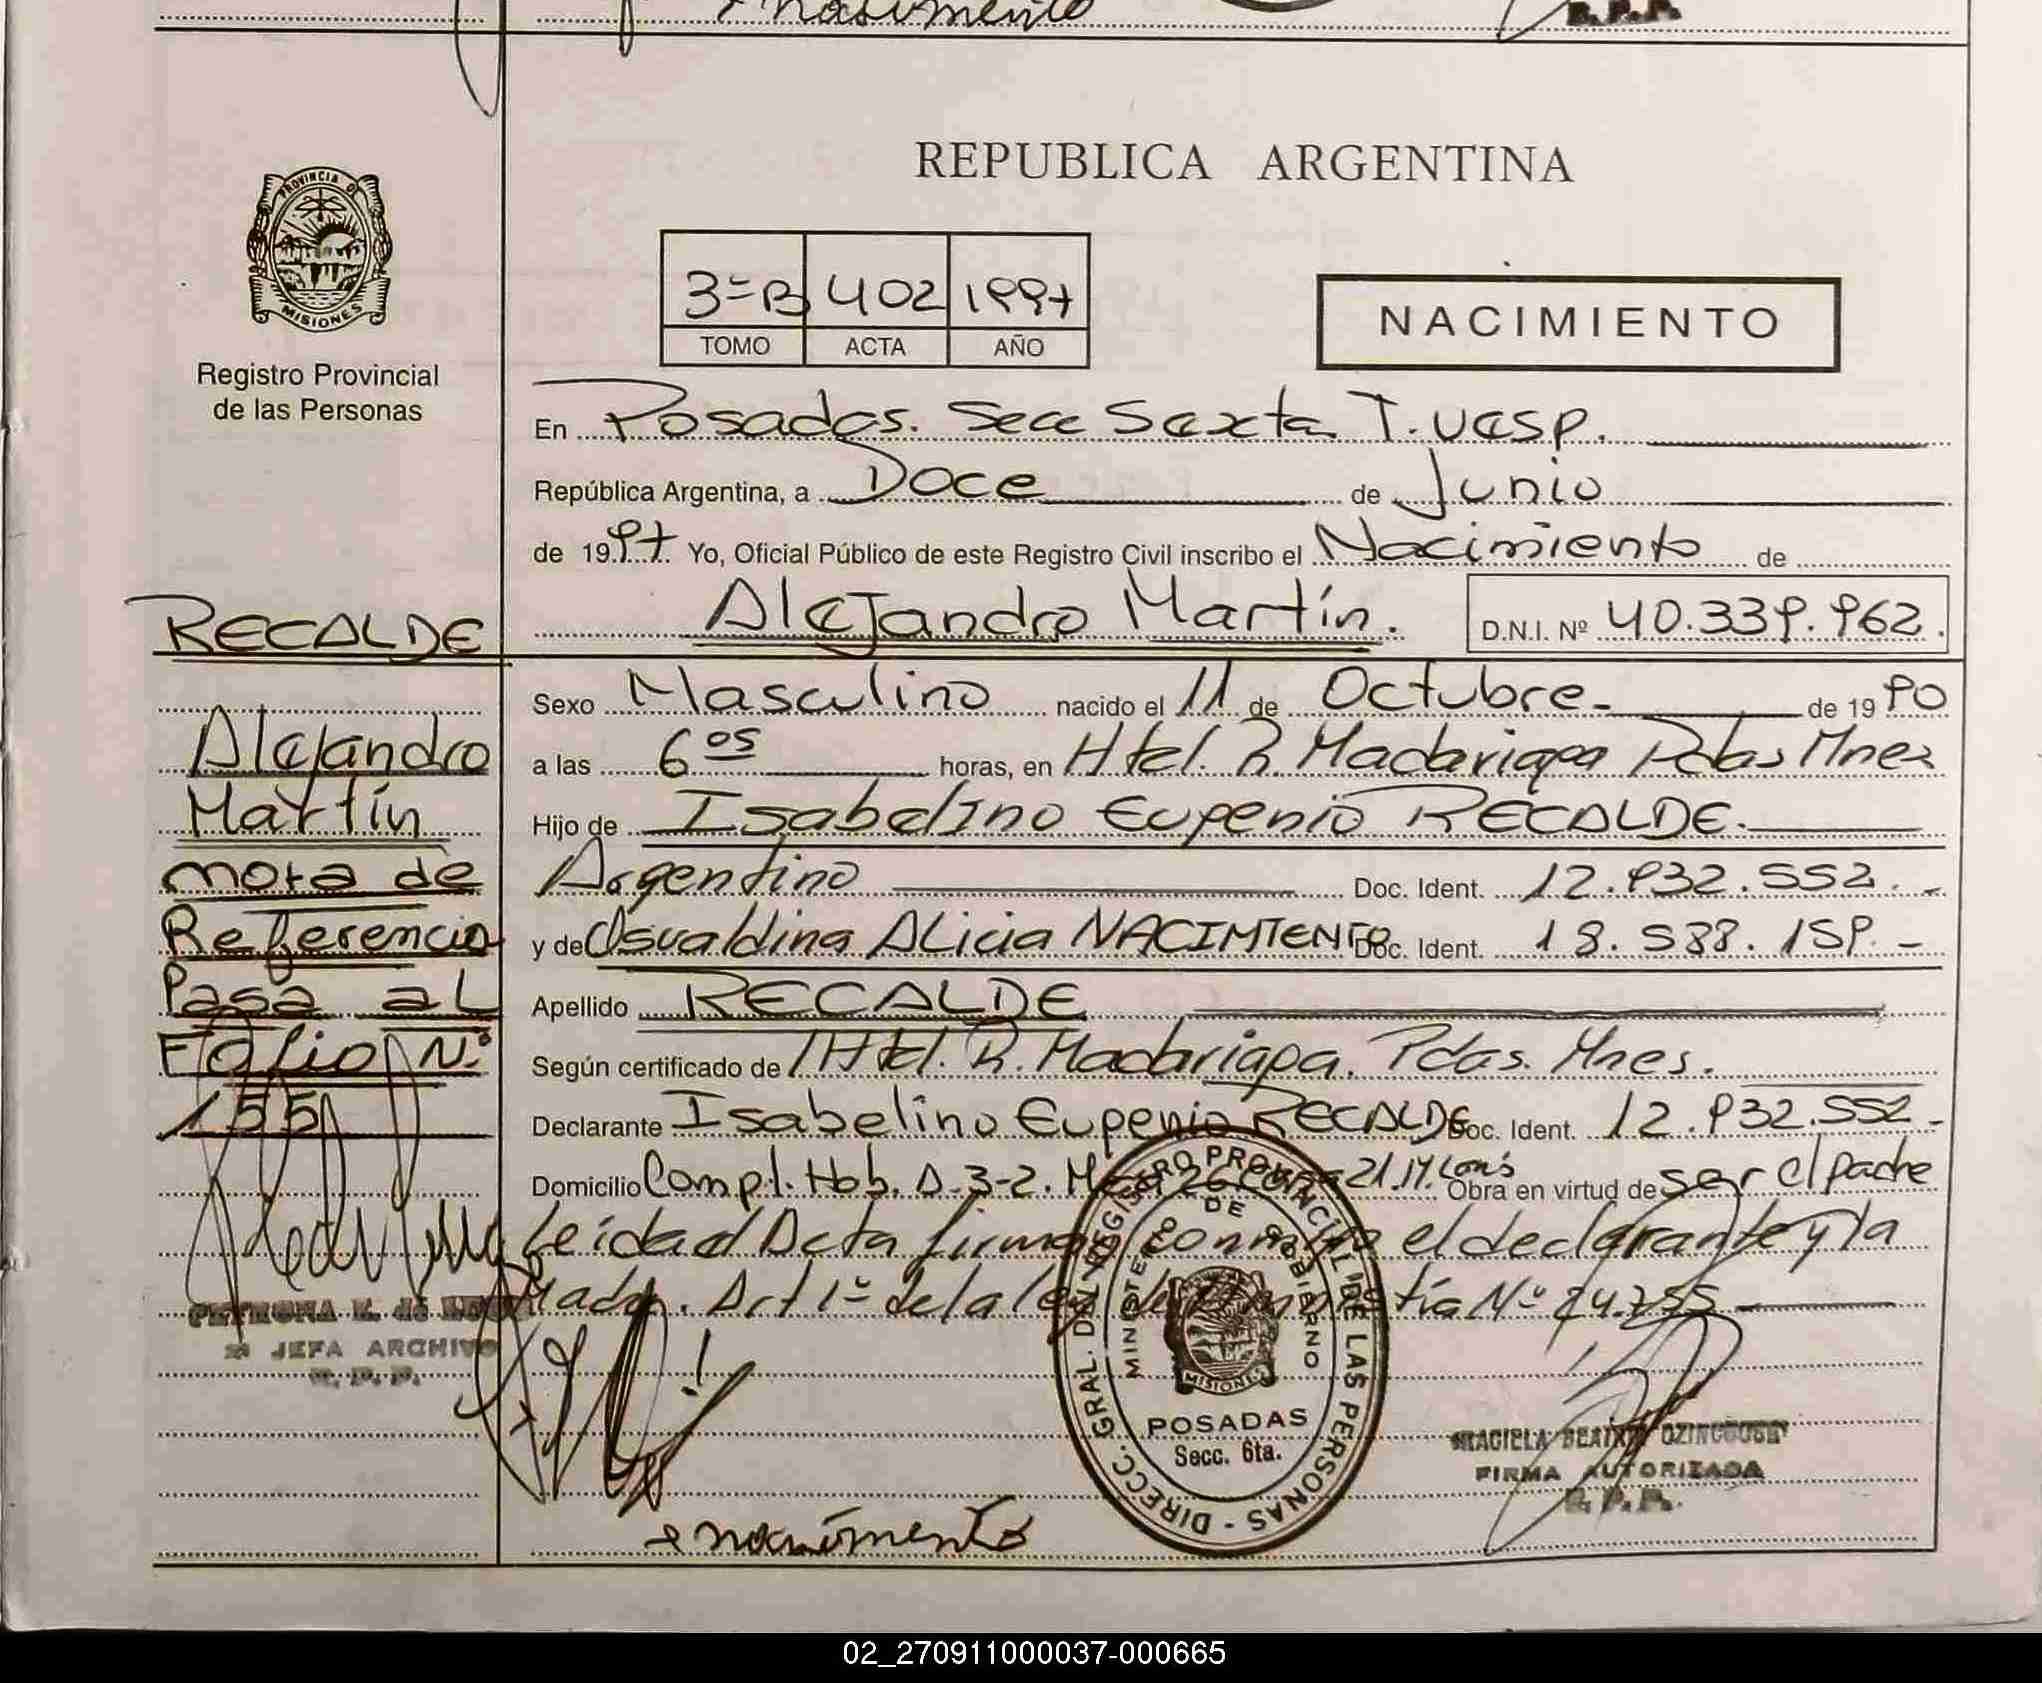 nacimento
R. P. P.
PROVINCIA DE
MISIONES
Registro Provincial
de las Personas
REPUBLICA ARGENTINA
3º B 402 1997
TOMO ACTA AÑO
NACIMIENTO
En Posadas. Secc Sexta T. Vesp.
República Argentina, a Doce de Junio
de 1997. Yo, Oficial Público de este Registro Civil inscribo el Nacimiento de
Alejandro Martín. D.N.I. Nº 40.339.962.
RECALDE
Alejandro
Martín
nota de
Referencia
Pasa al
Folio Nº
155
Sexo Masculino nacido el 11 de Octubre de 1990
a las 6 05 horas, en Htal. R. Madariaga Pdas Mnes
Hijo de Isabelino Eugenio RECALDE.
Argentino Doc. Ident. 12.932.552.-
y de Osvaldina ALicia NACIMIENTO Doc. Ident. 18.588.159.-
Apellido RECALDE
Según certificado de Htal. R. Madariaga. Pdas. Mnes.
Declarante Isabelino Eugenio RECALDE Doc. Ident. 12.932.552.-
Domicilio Compl. Hab. A-3-2. 21.M. Lonɔs Obra en virtud de ser el padre
Leída el Acta firman conmigo el declarante y la
Madre. Art 1º de la ley de Amnistía Nº 24.755
JEFA ARCHIVO
R. P. P.
DIRECC. GRAL. DEL REGISTRO PROVINCIAL DE LAS PERSONAS -
MINISTERIO DE GOBIERNO
MISIONES
POSADAS
Secc. 6ta.
FIRMA AUTORIZADA
R. P. P.
nacimento
02_270911000037-000665